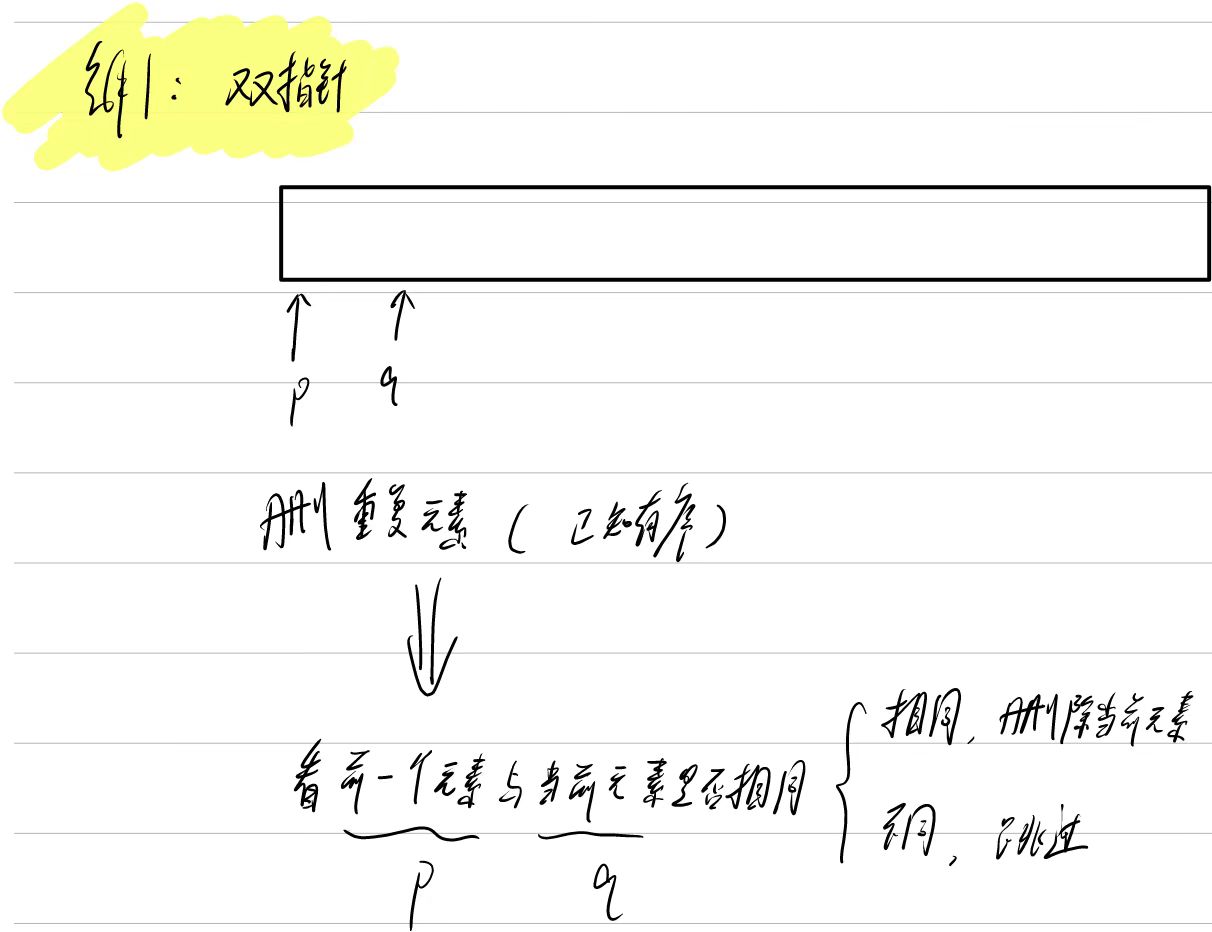 维1: 双指针
p q
删重复元素 ( 已知有序 )
看前一个元素与当前元素是否相同
相同, 删除当前元素
不同, 跳过
p q